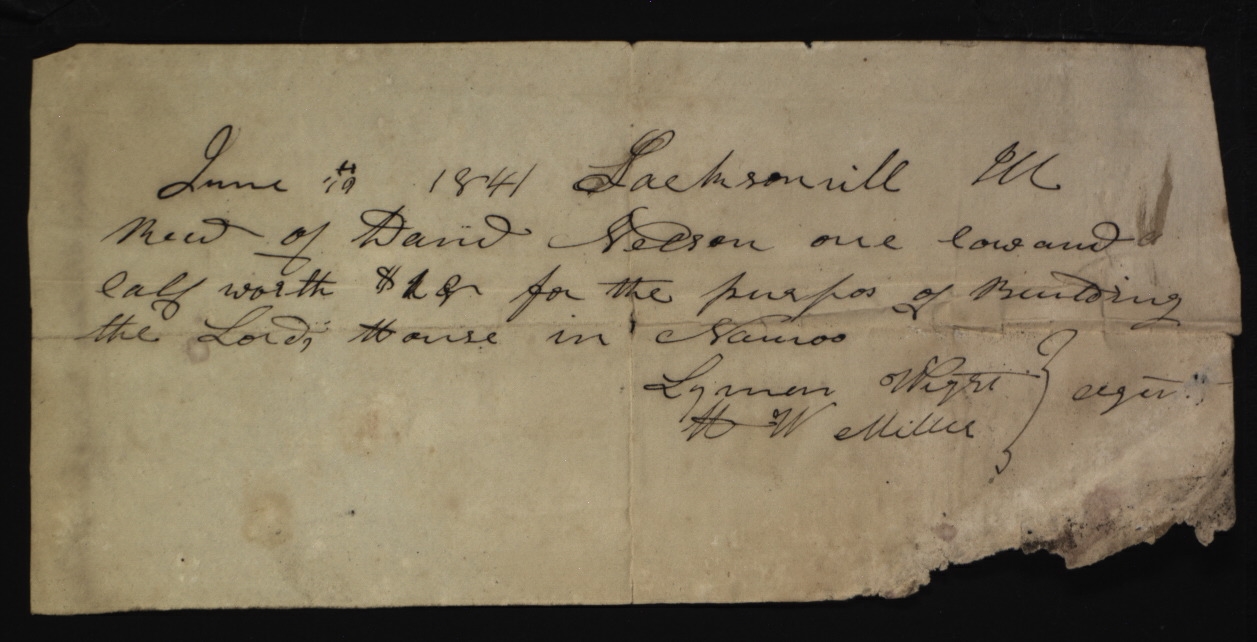 June 19th 1841 Jacksonvill Ill
Recd of David Nelson one cow and
calf worth $18 for the purpos of Building
the Lords House in Nauvoo
Lyman Wight
H W Miller